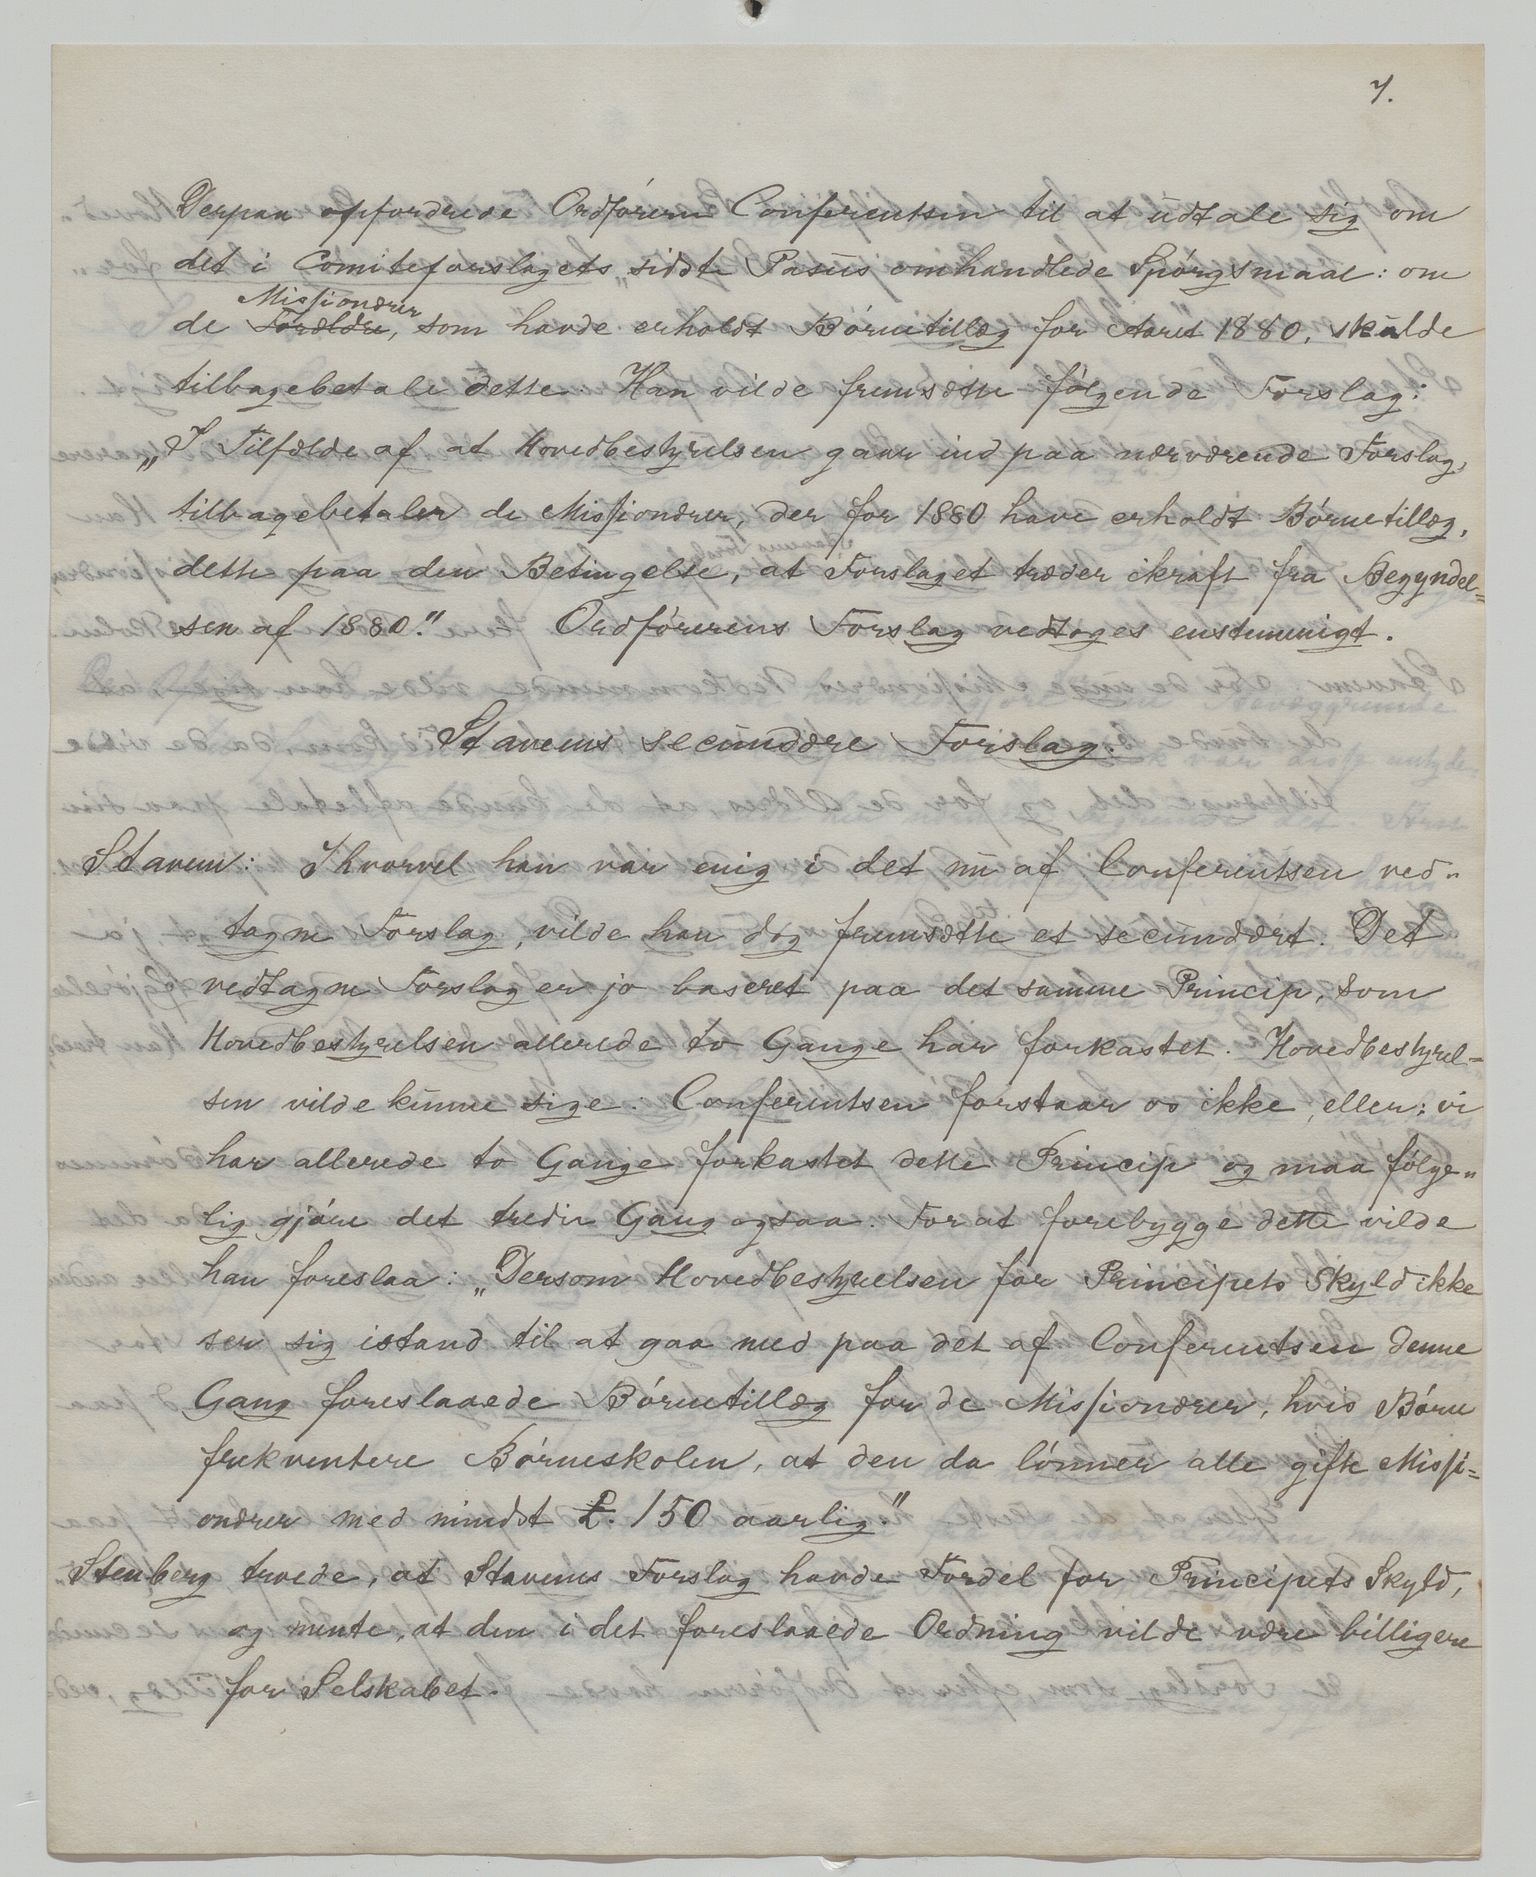 7.
Derpaa opfordrede Ordføreren Conferentsen til at udtale sig om
det i Comiteforslagets sidste Passus omhandlede Spørgsmaal: om
Missionærer
de Forældre, som havde erholdt Børnetillæg for Aaret 1880, skulde
tilbagebetale dette. Han vilde fremsætte følgende Forslag:
„I Tilfælde af at Hovedbestyrelsen gaar ind paa nærværende Forslag,
tilbagebetaler de Missionærer, der for 1880 have erholdt Børnetillæg,
dette paa den Betingelse, at Forslaget træder ikraft fra Begyndel=
sen af 1880." Ordførerens Forslag vedtoges enstemmigt.
Stavems secundære Forslag.
Stavem: Ihvorvel han var enig i det nu af Conferentsen ved„
tagne Forslag, vilde han dog fremsætte et secundært. Det
vedtagne Forslag er jo baseret paa det samme Princip, som
Hovedbestyrelsen allerede to Gange har forkastet. Hovedbestyrel=
sen vilde kunne sige: Conferentsen forstaar os ikke, eller: vi
har allerede to Gange forkastet dette Princip og maa følge„
lig gjøre det tredie Gang ogsaa. For at forebygge dette vilde
han foreslaa: „Dersom Hovedbestyrelsen for Principets Skyld ikke
ser sig istand til at gaa med paa det af Conferentsen denne
Gang foreslaaede Børnetillæg for de Missionærer, hvis Børn
frekventere Børneskolen, at den da lønner alle gifte Missi=
onærer med mindst £. 150 aarlig."
Stenberg troede, at Stavems Forslag havde Fordel for Principets Skyld,
og mente, at den i det foreslaaede Ordning vilde være billigere
for Selskabet.